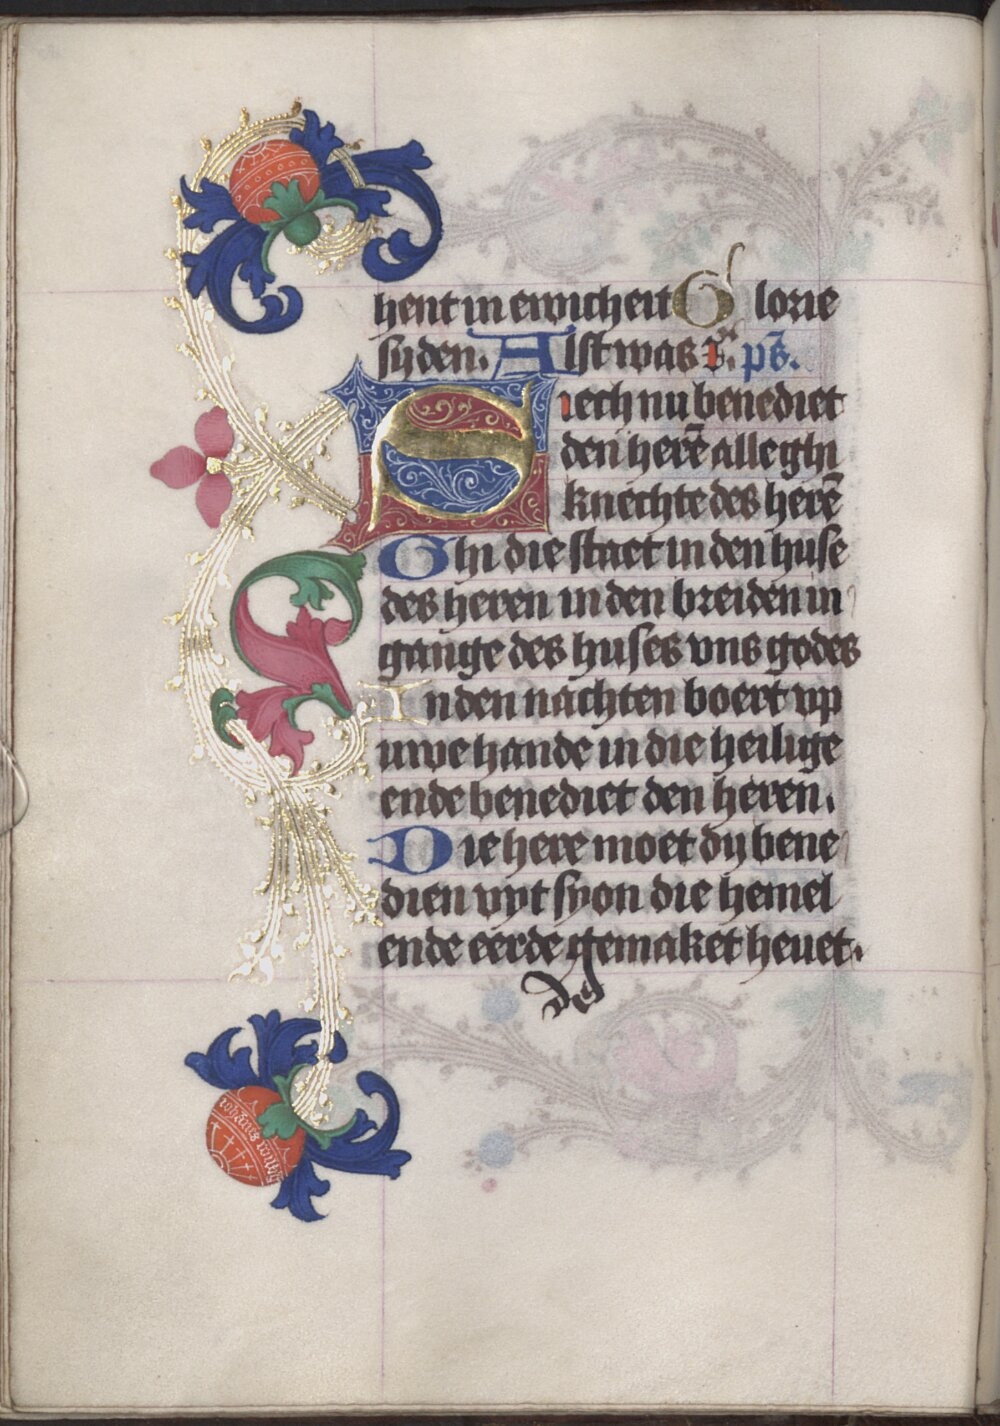 hent in ewicheit Glorie
syden. Alst was ps.
Siech nu benediet
den herē alle ghi
knechte des herē
Ghi die staet in den huse
des heren in den breiden in
gange des huses uns godes
In den nachten boert up
uwe hande in die heilige
ende benediet den heren.
Die here moet dy bene
dien uyt syon die hemel
ende eerde gemaket hevet.
des